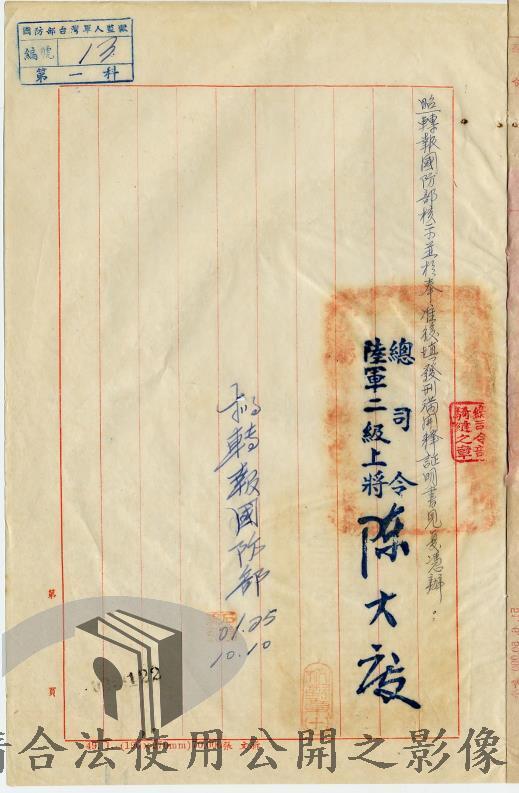 國防部台灣軍人監獄
編號 13
第一科
轉報國防部核示並於奉准後填發刑滿開釋証明書見复憑辦。
總司令
陸軍二級上將
陳大慶
總司令部
騎縫之章
轉報國防部
01.25
10.10
第
頁
122
請合法使用公開之影像